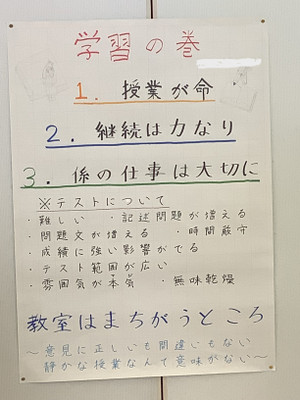 学習の巻
1. 授業が命
2. 継続は力なり
3. 係の仕事は大切に
※テストについて
・難しい ・記述問題が増える
・問題文が増える ・時間厳守
・成績に強い影響がでる
・テスト範囲が広い
・雰囲気が本気 ・無味乾燥
教室はまちがうところ
〜意見に正しいも間違いもない
静かな授業なんて意味がない〜